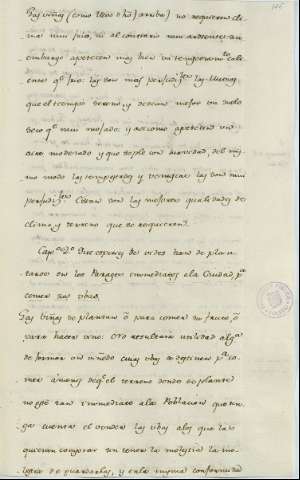 Las viñas (como llevo dho arriba) no requieren cli
ma mui frio, ni al contrario mui ardiente: sin
embargo apetecen mas bien un temperamto cali
ente qe frio: las son mas perjudles las lluvias
que el tiempo sereno, y desean mejor un suelo
seco qe mui mojado: y asi como apetecen un
aire moderado y que sople con suavidad, del mis
mo modo las tempestades y borrascas las son mui
perjudles. Estas son las mejores qualidades de
clima y terreno que se requieren.
Capo 2o Que especies de vides han de plan
tarse en los Parages inmediatos a la Ciudad, pa
comer sus ubas.
Las viñas se plantan ó para comer su fruto, ó
para hacer vino: no resultaria utilidad alga
de formar un viñedo cuias ubas se destinen pa co
mer á menos de qe el terreno donde se plante
no esté tan inmediato a la Poblacion que ten
ga cuenta el vender las ubas a los que las
quieran comprar sin tener la molestia la mo
lestia de guardarlas, y en la misma conformidad